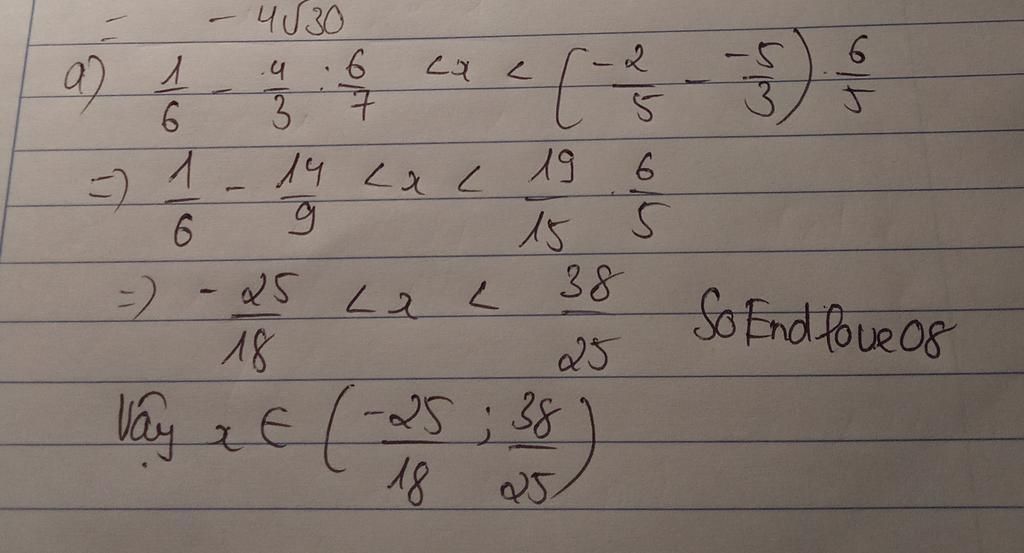 = - 4√30
a) 1/6 - 4/3 · 6/7 < x < (-2/5 - -5/3) · 6/5
=) 1/6 - 14/9 < x < 19/15 · 6/5
=) -25/18 < x < 38/25
SoEndloveO8
Vậy x ∈ (-25/18 ; 38/25)